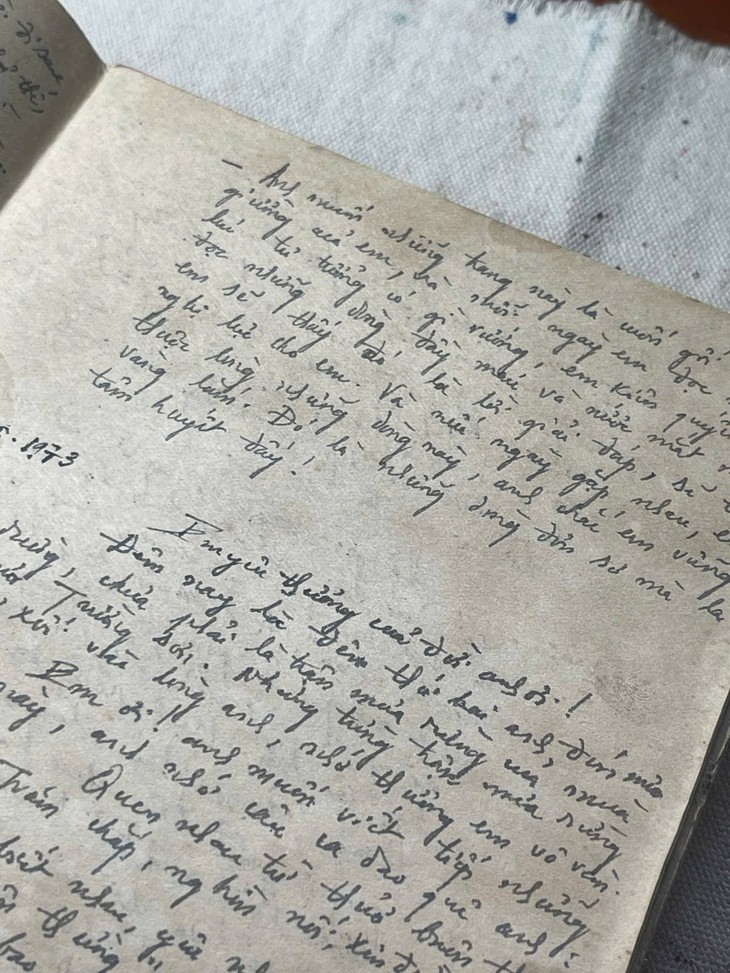 - Anh muốn những trang này là cuối gối
giường của em, và mỗi ngày em đọc
lúc tư tưởng có gì vướng, em kiên quyết
đọc những dòng đầy máu và nước mắt
em sẽ thấy đó là lời giải đáp, sẽ
nghị lực cho em. Và nếu ngày gặp nhau, em
thuộc lòng những dòng này, anh chắc em vững
vàng lắm. Đó là những dòng đơn sơ mà là
tâm huyết đấy!
1973
Em yêu thương của đời anh ơi!
Đêm nay là đêm thứ hai anh đón mưa
rừng, chưa phải là trận mưa riêng của mưa
Trường Sơn. Nhưng từng trận mưa rừng
xối vào lòng anh, nhớ thương em vô vàn.
Em ơi! anh muốn viết tiếp những
này, anh nhớ câu ca dao quê anh:
Quen nhau từ thuở
Trăm chắp, nghìn nối, xin
biết nhau, yêu
thương
bao